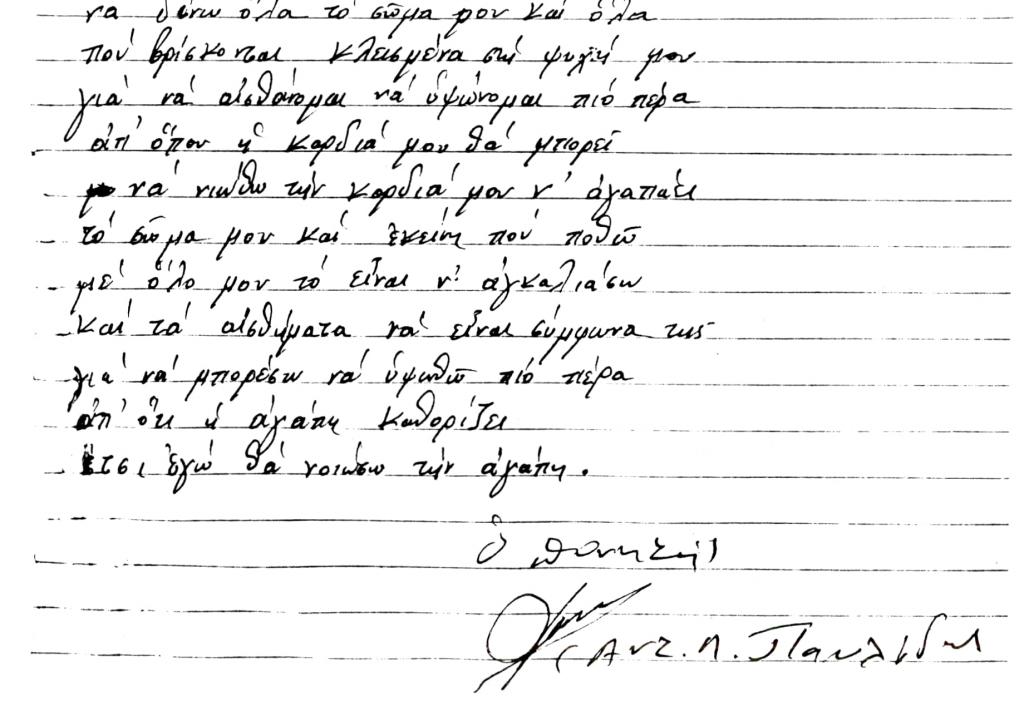 νά δίνω ὅλα τό σῶμα μου καί ὅλα
πού βρίσκονται κλεισμένα στή ψυχή μου
γιά νά αἰσθάνομαι νά ὑψώνομαι πιό πέρα
ἀπ' ὅπου ἡ καρδιά μου θά μπορεῖ
νά νιώθω τήν καρδιά μου ν' ἀγαπάει
τό σῶμα μου καί ἐκείνη πού ποθῶ
μέ ὅλο μου τό εἶναι ν' ἀγκαλιάσω
καί τά αἰσθήματα νά εἶναι σύμφωνα της
γιά νά μπορέσω νά ὑψωθῶ πιό πέρα
ἀπ' ὅτι ἡ ἀγάπη καθορίζει
ἔτσι ἐγώ θά νοιώσω τήν ἀγάπη.
ὁ ποιητής
Αντ. Π. Παυλίδης